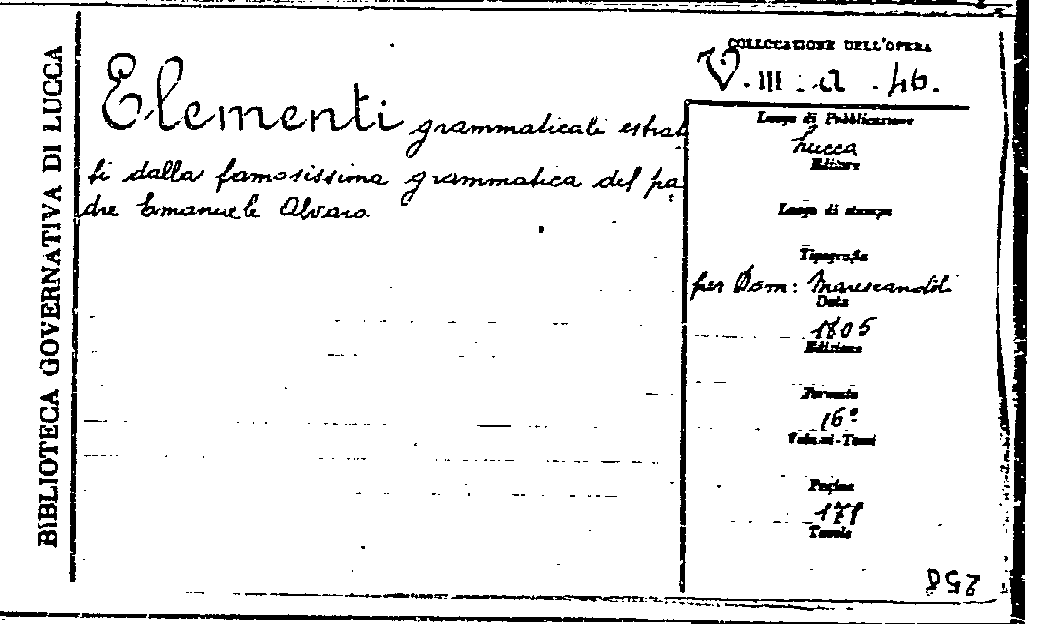 BIBLIOTECA GOVERNATIVA DI LUCCA
Elementi grammaticali estrat
ti dalla famosissima grammatica del pa
dre Emanuele Alvaro
COLLOCAZIONE DELL'OPERA
V. III. a. 46.
Luogo di Pubblicazione
Lucca
Editore
Luogo di stampa
Tipografia
per Dom: Marescandoli
Data
1805
Edizione
Formato
16º
Volumi-Tomi
Pagine
Tavole
258